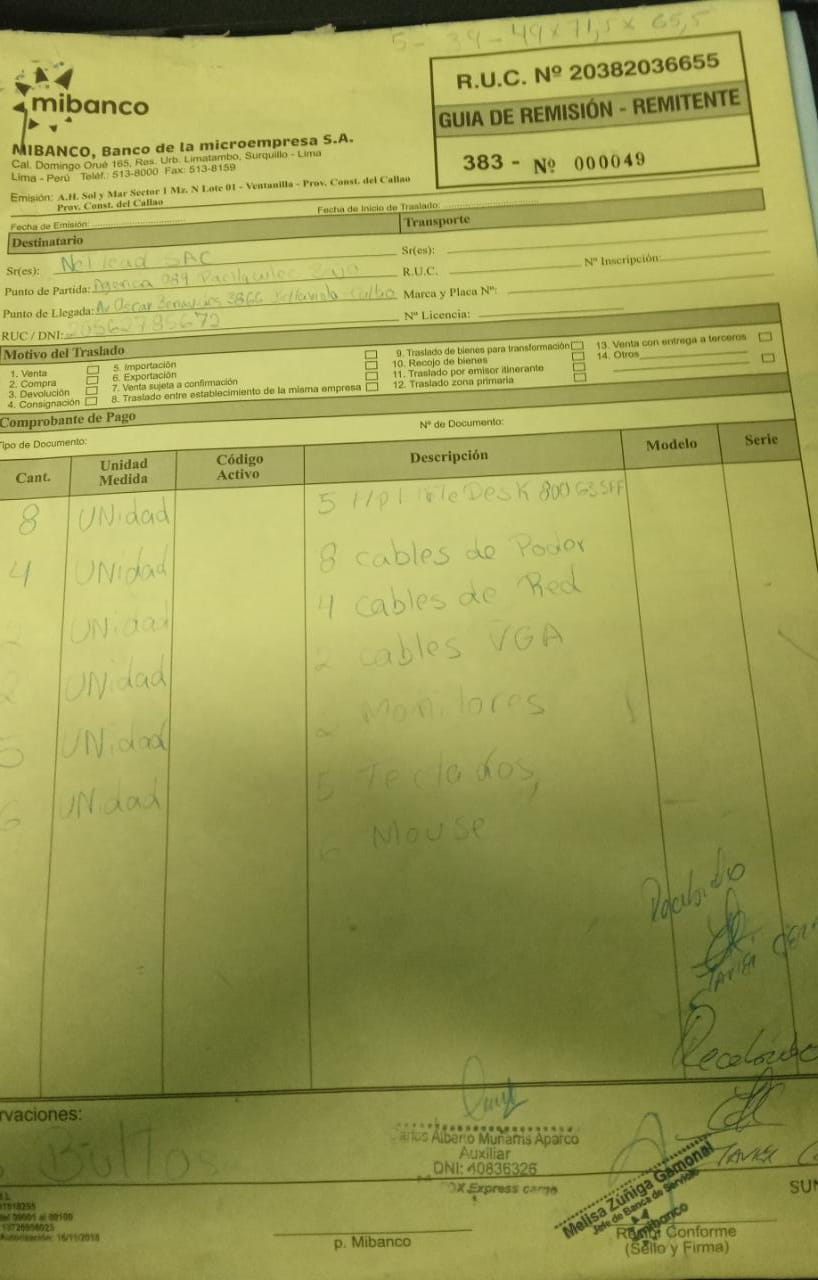 5 - 39 - 49 x 71,5 x 65,5
mibanco
MIBANCO, Banco de la microempresa S.A.
Cal. Domingo Orué 165, Res. Urb. Limatambo, Surquillo - Lima
Lima - Perú Teléf.: 513-8000 Fax: 513-8159
Emisión: A.H. Sol y Mar Sector 1 Mz. N Lote 01 - Ventanilla - Prov. Const. del Callao
Prov. Const. del Callao
R.U.C. Nº 20382036655
GUIA DE REMISIÓN - REMITENTE
383 - Nº 000049
Fecha de Emisión:
Fecha de Inicio de Traslado:
Destinatario
Transporte
Sr(es): SAC
Sr(es):
Punto de Partida: Agencia
R.U.C. Nº Inscripción:
Punto de Llegada: Av Oscar Benavides 3866
Marca y Placa Nº:
RUC / DNI: 20562785672
Nº Licencia:
Motivo del Traslado
1. Venta
2. Compra
3. Devolución
4. Consignación
5. Importación
6. Exportación
7. Venta sujeta a confirmación
8. Traslado entre establecimiento de la misma empresa
9. Traslado de bienes para transformación
10. Recojo de bienes
11. Traslado por emisor itinerante
12. Traslado zona primaria
13. Venta con entrega a terceros
14. Otros
Comprobante de Pago
Tipo de Documento:
Nº de Documento:
Cant. Unidad Medida Código Activo Descripción Modelo Serie
8 UNidad 5 Desk 800 G3 SFF
4 UNidad 8 cables de Poder
UNidad 4 cables de Red
2 UNidad 2 cables VGA
5 UNidad 2 Monitores
6 UNidad 5 Teclados,
6 Mouse
Recibido
JAVIER
rvaciones:
Bultos
Alberto Muñarris Aparco
Auxiliar
DNI: 40836326
Express cargo
Melisa Zúñiga Gamonal
Jefe de Banca de Servicio
mibanco
JAVIER
SUN
p. Mibanco
Conforme
(Sello y Firma)